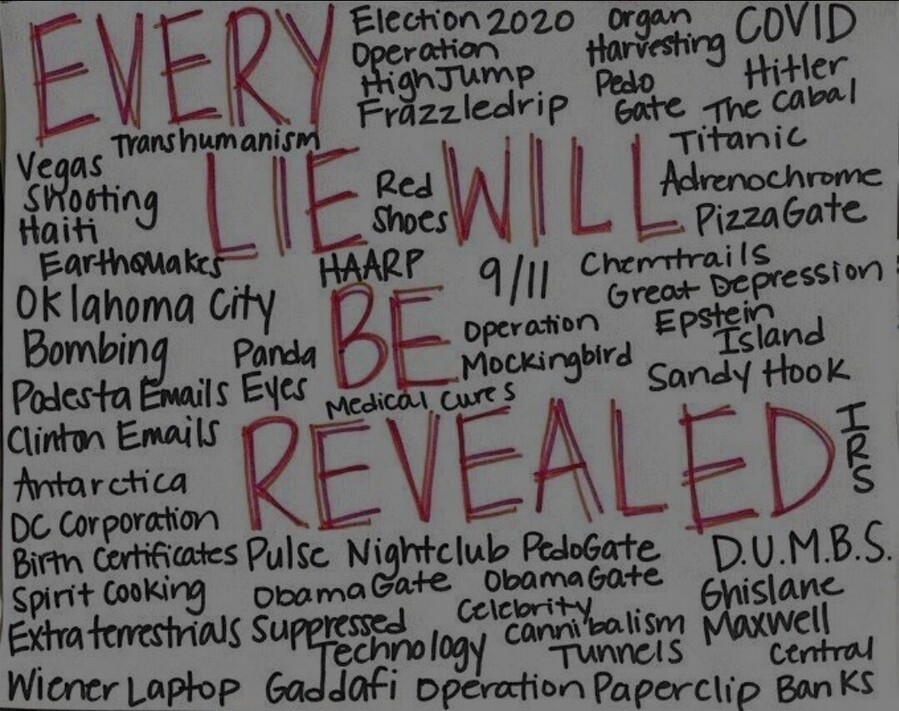 EVERY
Election 2020
Operation
HighJump
Frazzledrip
Organ
Harvesting
Pedo
Gate
COVID
Hitler
The Cabal
Transhumanism
Vegas
Shooting
Haiti
Earthquakes
LIE
Red
Shoes
WILL
Titanic
Adrenochrome
PizzaGate
HAARP
9/11
Chemtrails
Great Depression
Oklahoma City
Bombing
Panda
Eyes
BE
Operation
Mockingbird
Epstein
Island
Sandy Hook
Podesta Emails
Medical Cures
Clinton Emails
REVEALED
IRS
Antarctica
DC Corporation
Birth Certificates
Pulse Nightclub
PedoGate
D.U.M.B.S.
Spirit Cooking
ObamaGate
ObamaGate
Ghislane
Maxwell
Extraterrestrials
Suppressed
Technology
Celebrity
Cannibalism
Tunnels
Central
Banks
Wiener Laptop
Gaddafi
Operation Paperclip